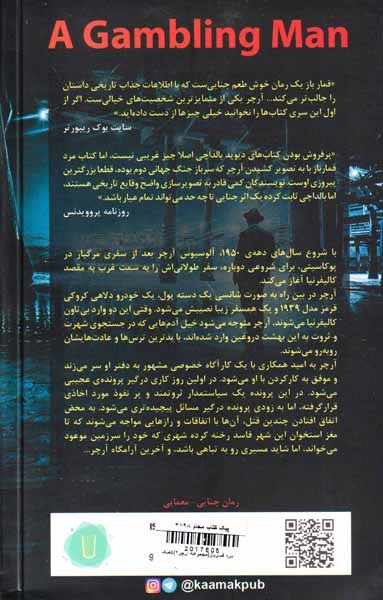 A Gambling Man
«قمار باز یک رمان خوش طعم جنایی‌ست که با اطلاعات جذاب تاریخی داستان
را جالب‌تر می‌کند... آرچر یکی از متمایزترین شخصیت‌های خیالی‌ست. اگر از
اول این سری کتاب‌ها را نخوانید خیلی چیزها از دست داده‌اید.»
سایت بوک ریپورتر
«پرفروش بودن کتاب‌های دیوید بالداچی اصلا چیز غریبی نیست، اما کتاب مرد
قمارباز با به تصویر کشیدن آرچر که سرباز جنگ جهانی دوم بوده، قطعا بزرگترین
پیروزی اوست. نویسندگان کمی قادر به تصویرسازی واضح وقایع تاریخی هستند،
اما بالداچی ثابت کرده یک اثر جنایی تا چه حد می‌تواند تمام عیار باشد.»
روزنامه پروویدنس
با شروع سال‌های دهه‌ی ۱۹۵۰، آلوسیوس آرچر بعد از سفری مرگبار در
پوکاسیتی، برای شروعی دوباره، سفر طولانی‌اش را به سمت غرب به مقصد
کالیفرنیا آغاز می‌کند.
آرچر در بین راه به صورت شانسی یک دسته پول، یک خودرو دلاهی کروکی
قرمز مدل ۱۹۳۹ و یک همسفر زیبا نصیبش می‌شود. وقتی این دو وارد بی‌تاون
کالیفرنیا می‌شوند، آرچر متوجه می‌شود خیل آدم‌هایی که در جستجوی شهرت
و ثروت به این بهشت دروغین وارد شده‌اند، با بدترین ترس‌ها و عادت‌هایشان
روبه‌رو می‌شوند.
آرچر به امید همکاری با یک کارآگاه خصوصی مشهور به دفتر او سر می‌زند
و موفق به کارکردن با او می‌شود. در اولین روز کاری درگیر پرونده‌ی عجیبی
می‌شود. در این پرونده یک سیاستمدار ثروتمند و پر نفوذ مورد اخاذی
قرارگرفته، اما به زودی پرونده درگیر مسائل پیچیده‌تری می‌شود. به محض
اتفاق افتادن چندین قتل، آن‌ها با اتفاقات و رازهایی مواجه می‌شوند که تا
مغز استخوان این شهر فاسد رخنه کرده شهری که خود را سرزمین موعود
می‌خواند، اما شاید مسیری رو به تباهی باشد، و آخرین آرامگاه آرچر...
رمان جنایی - معمایی
2017608
@kaamakpub